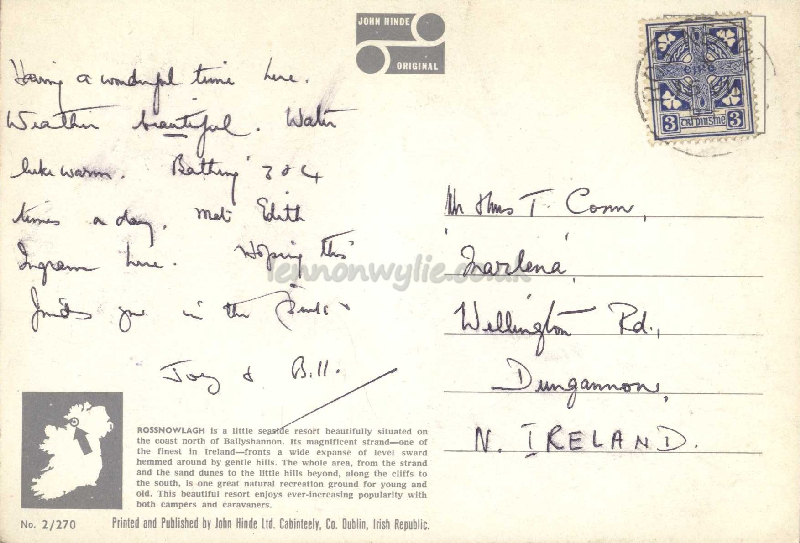 JOHN HINDE
ORIGINAL
Having a wonderful time here.
Weather beautiful. Water
luke warm. Bathing 3 or 4
times a day. Met Edith
Ingram here. Hoping this
finds you in the
Joy & Bill.
3 3
Mr T. Conn,
'Marlena',
Wellington Rd.,
Dungannon,
N. IRELAND.
lennonwylie.co.uk
ROSSNOWLAGH is a little seaside resort beautifully situated on
the coast north of Ballyshannon. Its magnificent strand—one of
the finest in Ireland—fronts a wide expanse of level sward
hemmed around by gentle hills. The whole area, from the strand
and the sand dunes to the little hills beyond, along the cliffs to
the south, is one great natural recreation ground for young and
old. This beautiful resort enjoys ever-increasing popularity with
both campers and caravaners.
No. 2/270
Printed and Published by John Hinde Ltd. Cabinteely, Co. Dublin, Irish Republic.